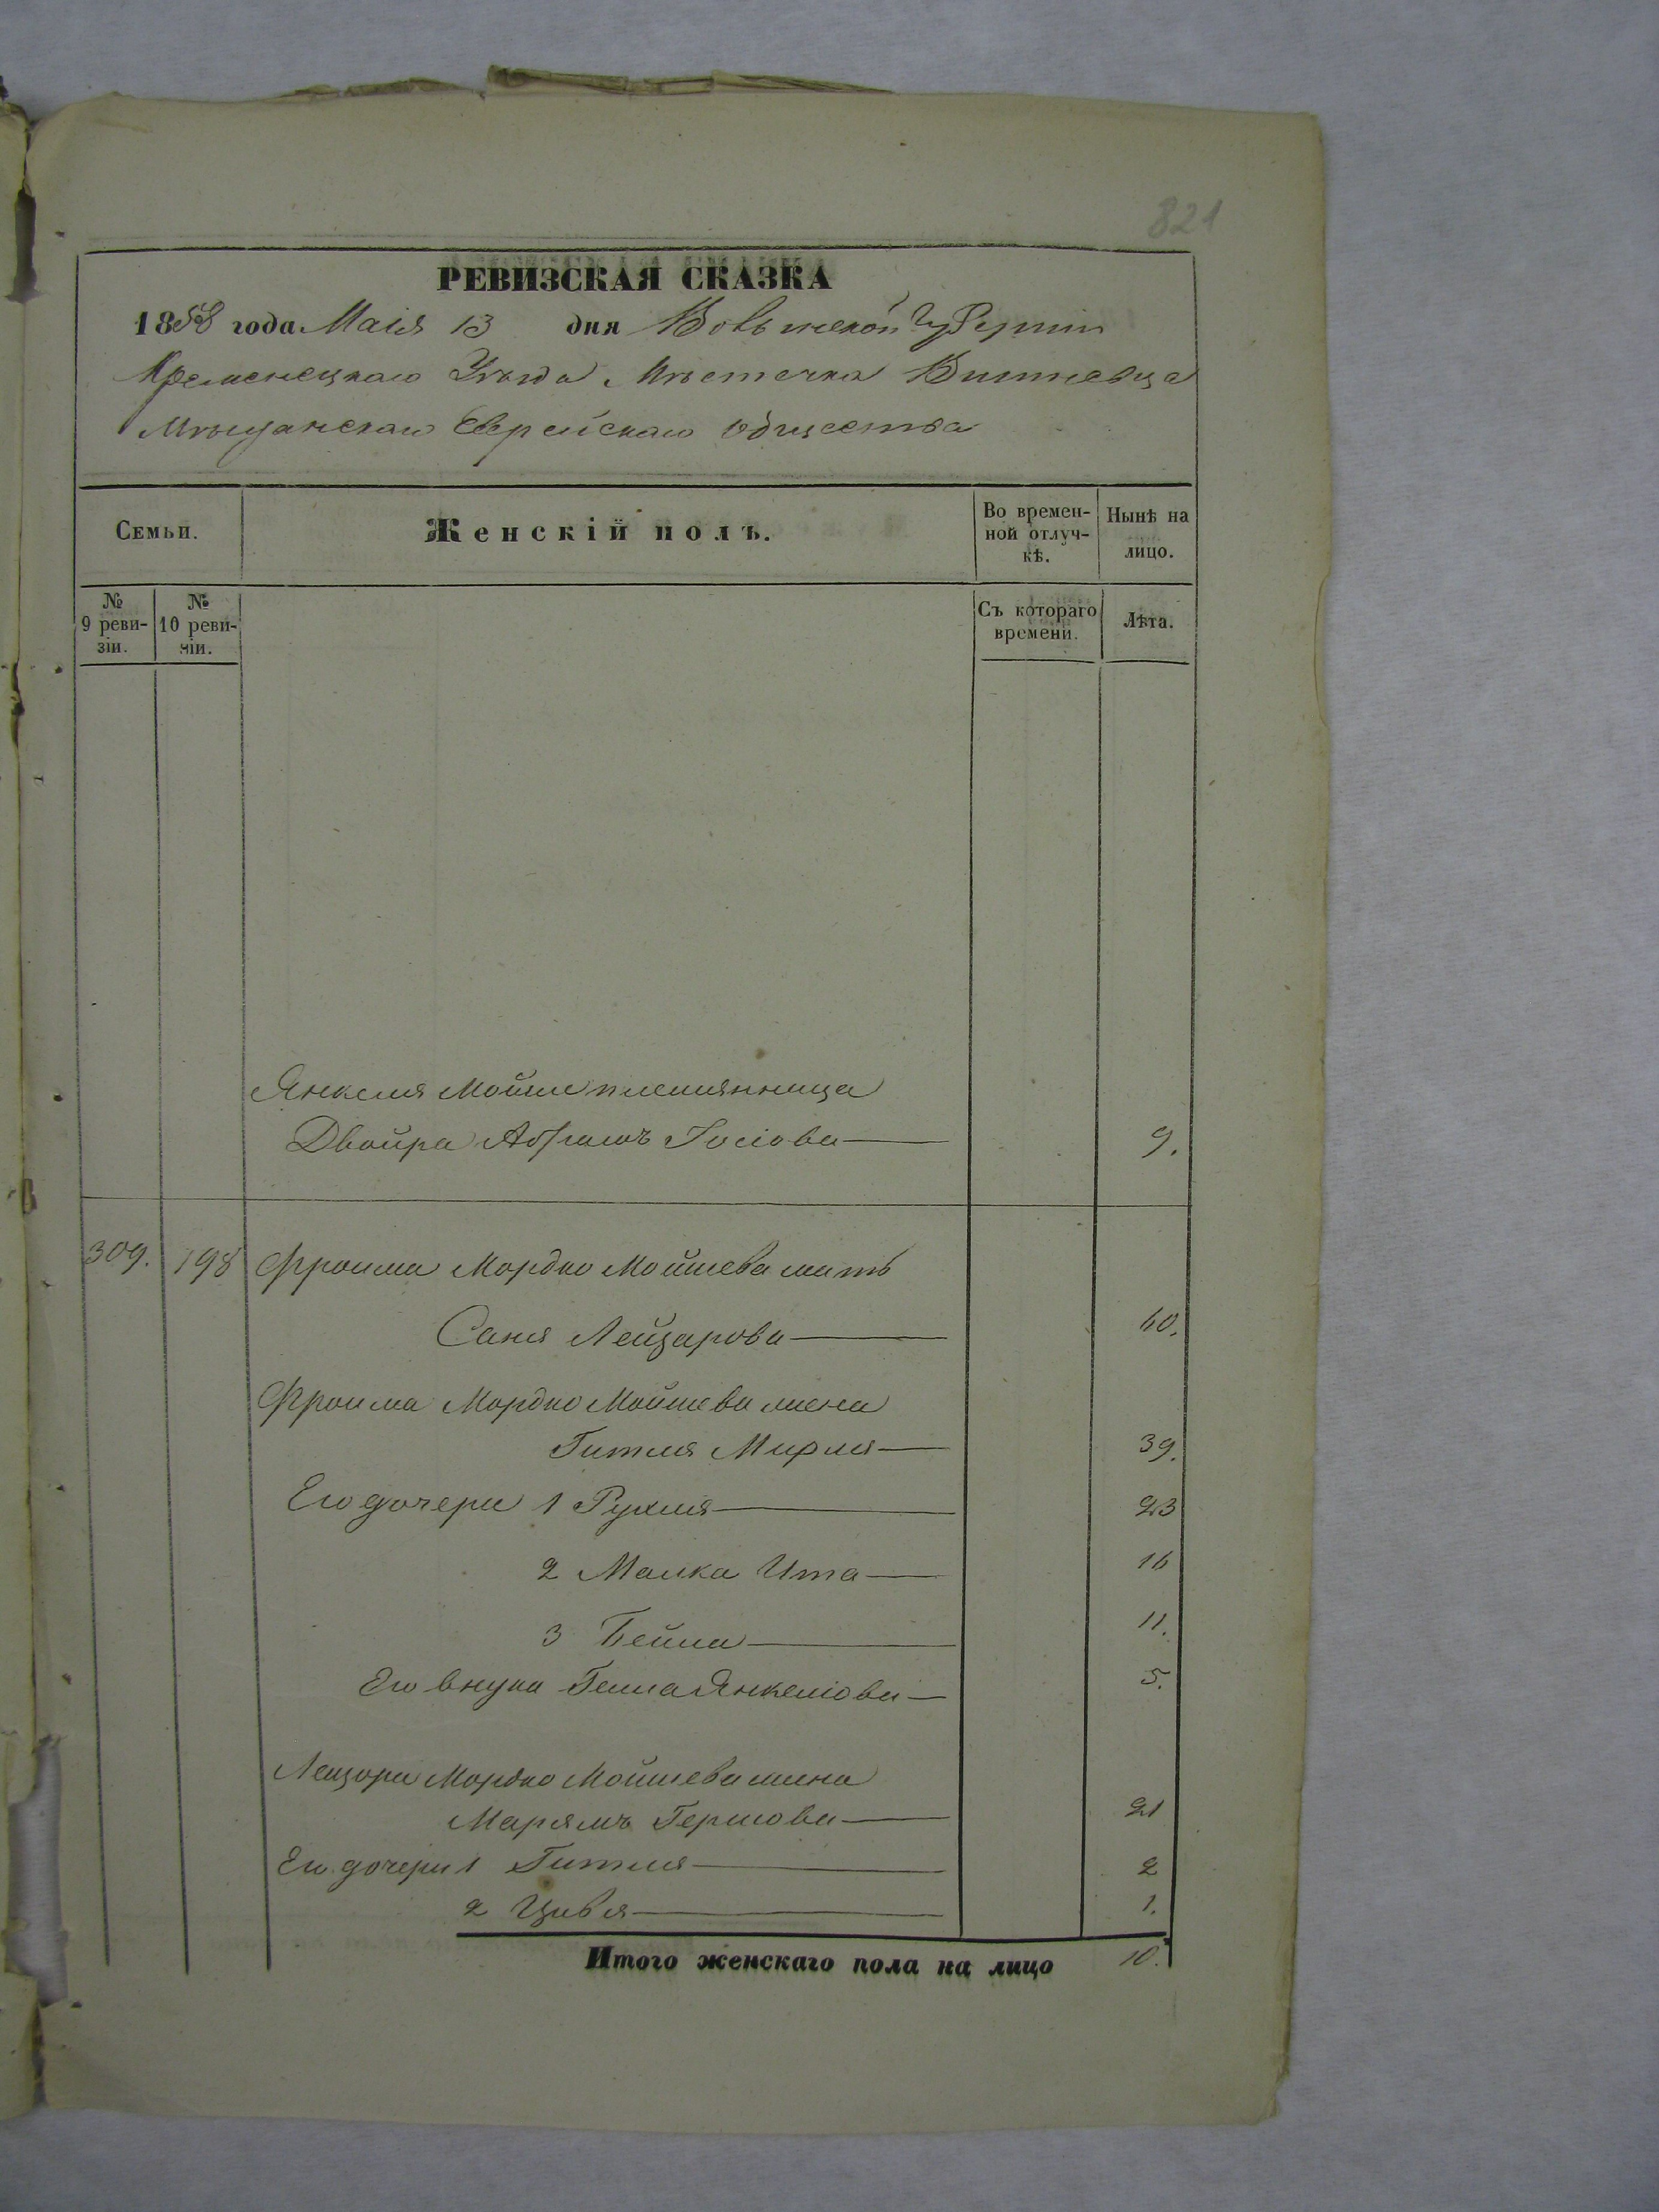 821
РЕВИЗСКАЯ СКАЗКА
1858 года Маія 13 дня Волынской Губерніи
Кременецкаго Уѣзда Мѣстечка Вишневца
Мѣщанскаго Еврейскаго общества
Семьи.
Женскій полъ.
Во времен-
ной отлуч-
кѣ.
Нынѣ на
лицо.
№
9 реви-
зіи.
№
10 реви-
зіи.
Съ котораго
времени.
Лѣта.
Янкеля Мойши племянница
Двойра Абрамъ 9.
309. 198 Фроима Мордко Мойшева мать
Саня Лейзарова 60.
Фроима Мордко Мойшева жена
Гитля Мирля 39.
Его дочери 1 Рухля 23
2 Малка Ита 16
3 Бейла 11.
Его внука Генна Янкелiова 5.
Лейзора Мордко Мойшева жена
Марямъ Гершова 21
Его дочери 1 Гитля 2
2 Цивя 1.
Итого женскаго пола на лицо 10.